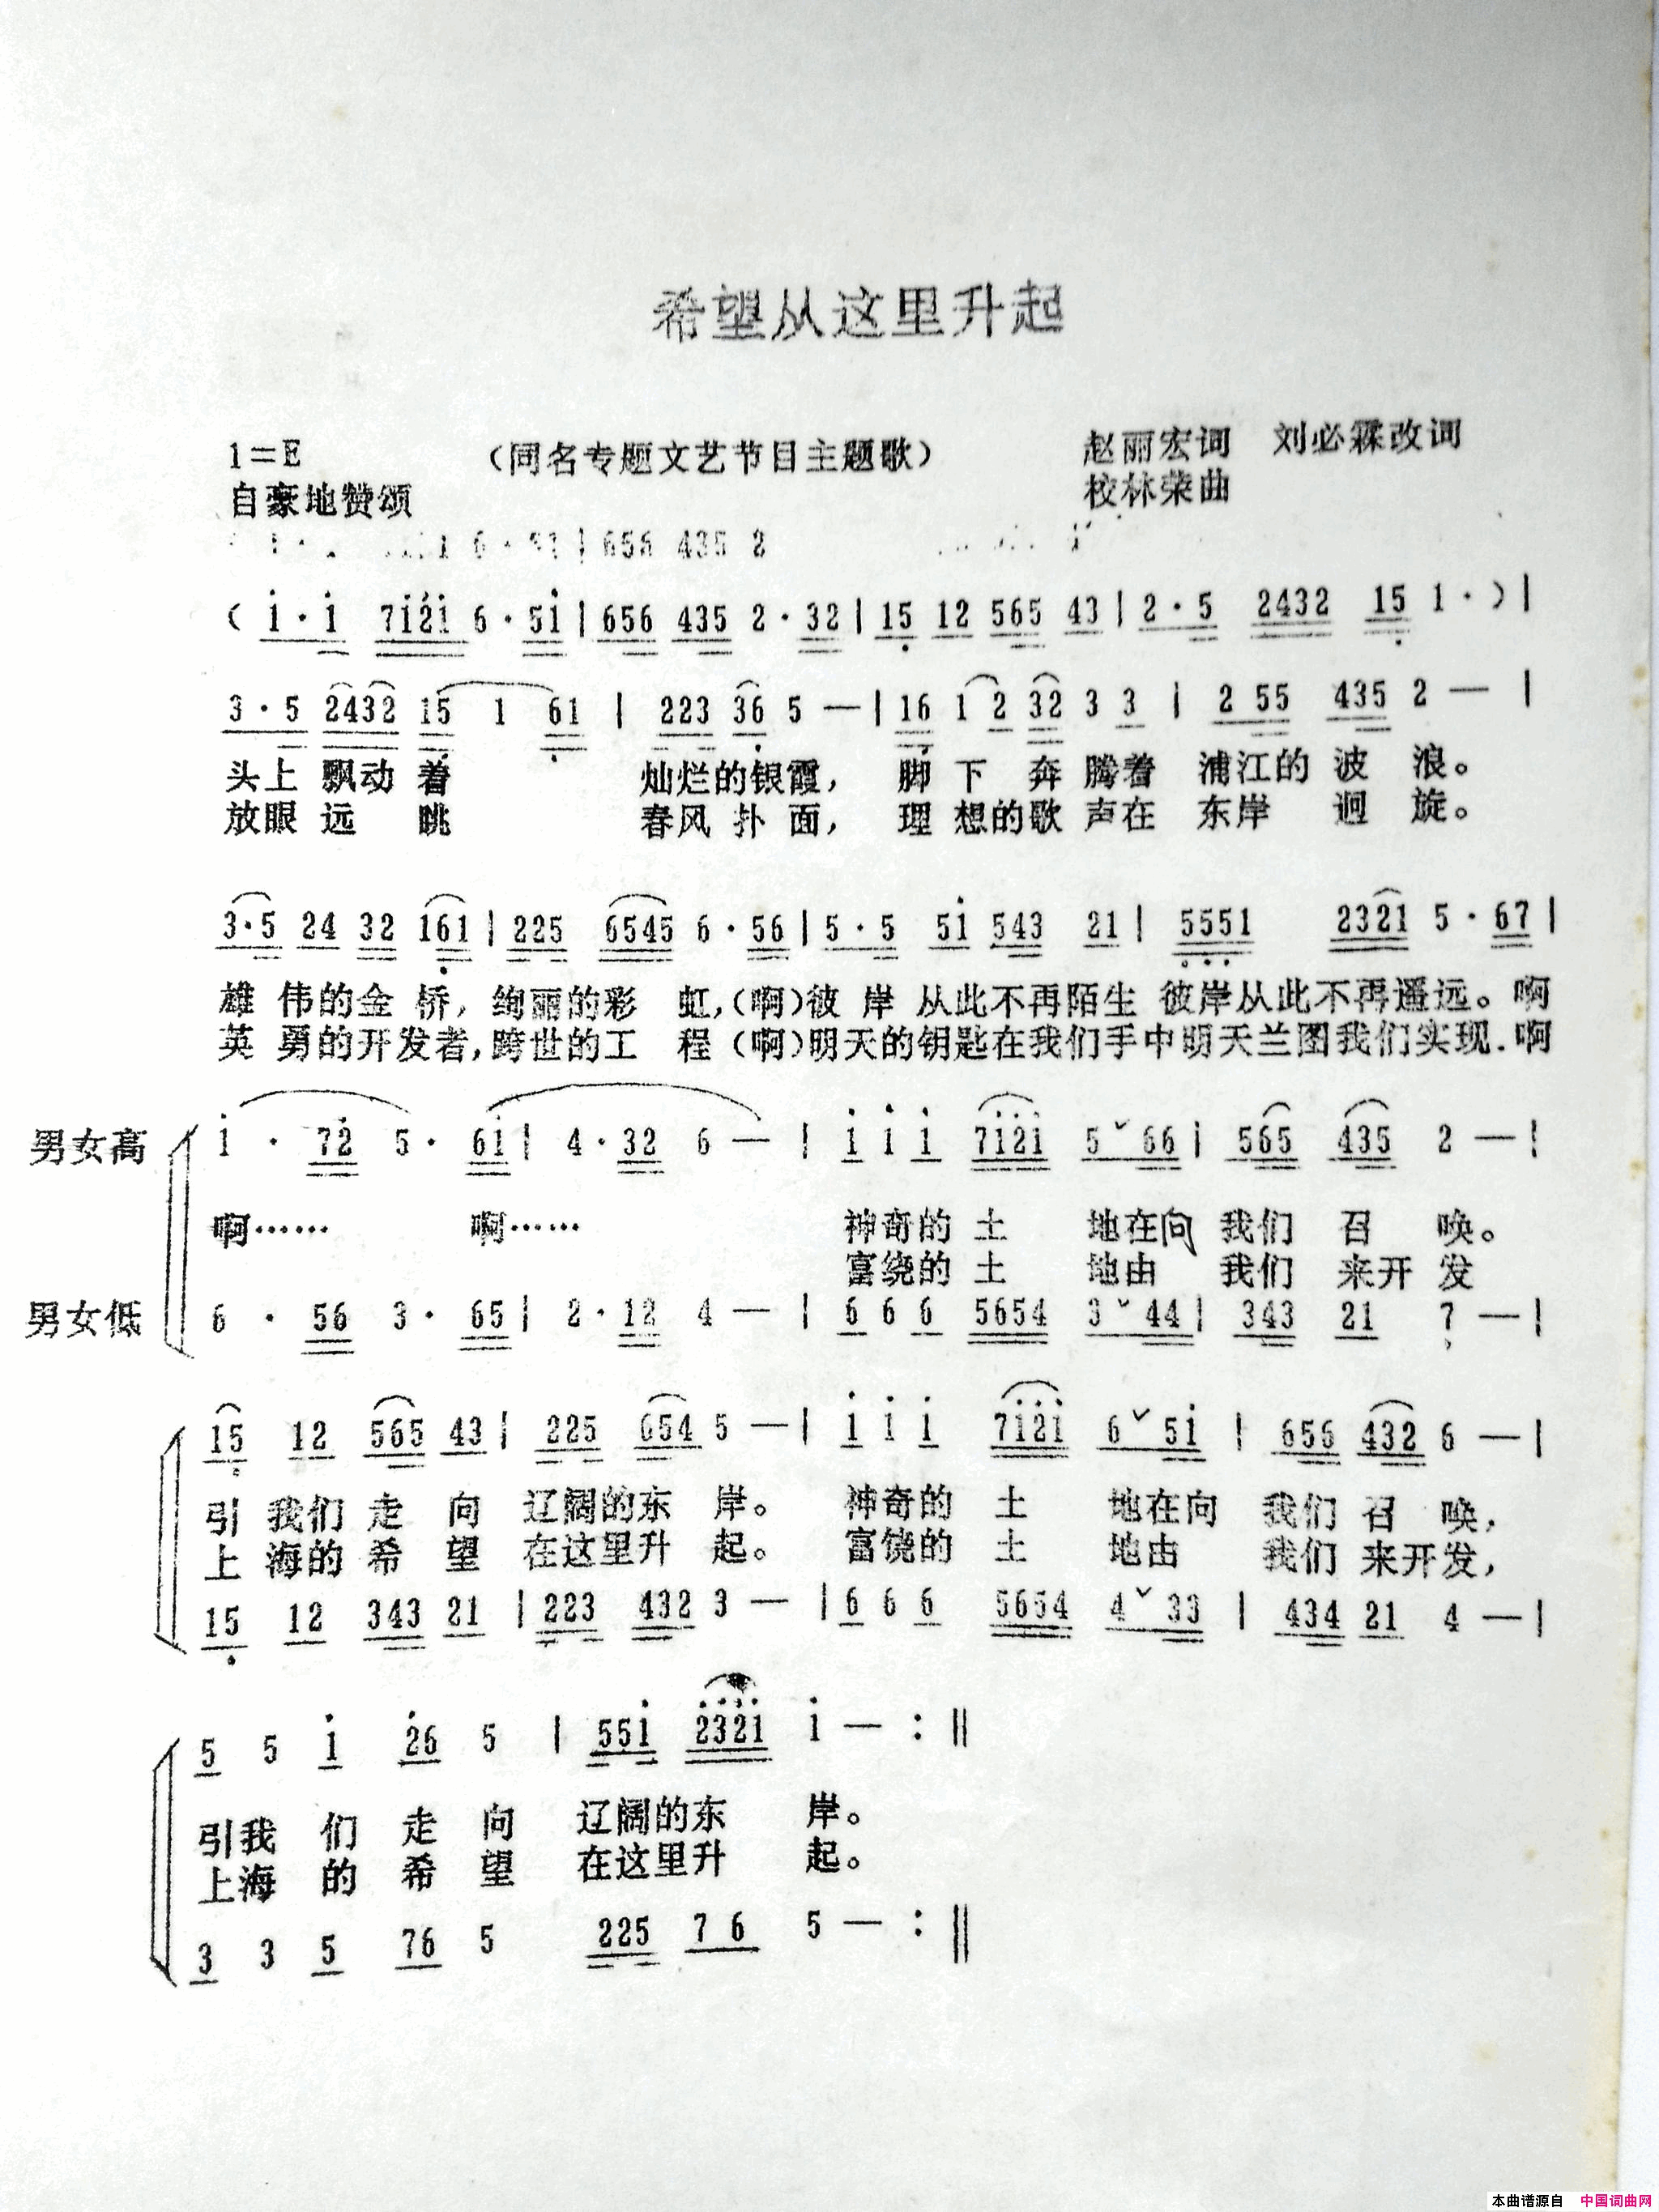 希望从这里升起
1=E （同名专题文艺节目主题歌） 赵丽宏词 刘必霖改词
自豪地赞颂 校林荣曲
6·51|656 435 2
( i·i 7i2i 6·5i|656 435 2·32|15 12 565 43|2·5 2432 15 1·)|
3·5 2432 15 1 61 | 223 36 5 —|16 1 2 32 3 3 | 2 55 435 2 — |
头上飘动着 灿烂的银霞， 脚下奔腾着 浦江的波浪。
放眼远眺 春风扑面， 理想的歌声在东岸迥旋。
3·5 24 32 161|225 6545 6·56|5·5 5i 543 21| 5551 2321 5·67|
雄伟的金桥，绚丽的彩虹，(啊)彼岸从此不再陌生 彼岸从此不再遥远。啊
英勇的开发者,跨世的工程 (啊)明天的钥匙在我们手中明天兰图我们实现.啊
男女高 i · 72 5· 6i| 4·32 6 — | i i i 7i2i 5ˇ66| 565 435 2 —|
啊…… 啊…… 神奇的土地在向我们召唤。
富绕的土地由我们来开发
男女低 6 · 56 3· 65| 2·12 4 — | 6 6 6 5654 3ˇ44| 343 21 7 —|
15 12 565 43| 225 654 5 —| i i i 7i2i 6ˇ5i | 656 432 6 —|
引我们走向辽阔的东岸。 神奇的土地在向我们召唤，
上海的希望在这里升起。 富饶的土地由我们来开发，
15 12 343 21 |223 432 3 — |6 6 6 5654 4ˇ33 | 434 21 4 —|
5 5 i 26 5 | 55i 2321 i — :‖
引我们走向辽阔的东岸。
上海的希望在这里升起。
3 3 5 76 5 225 7 6 5 — :‖
本曲谱源自 中国词曲网